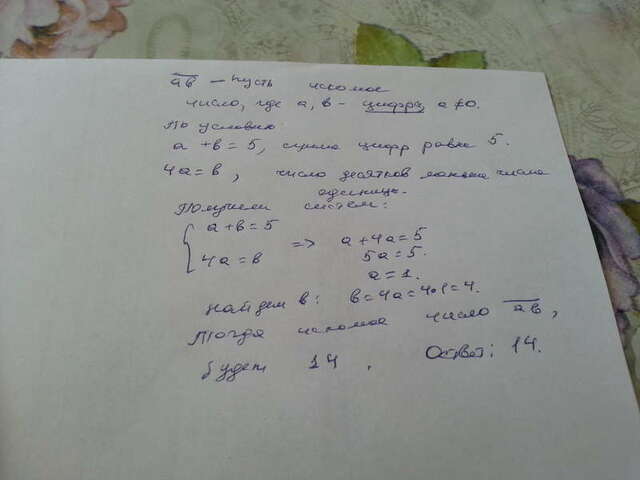 ab — пусть искомое
число, где a, b - цифры, a ≠ 0.
По условию:
a + b = 5, сумма цифр равна 5.
4a = b, число десятков меньше числа
единиц.
Получили систем:
{ a + b = 5
4a = b => a + 4a = 5
5a = 5.
a = 1.
найдем b: b = 4a = 4•1 = 4.
Тогда искомое число ab,
будет 14. Ответ: 14.